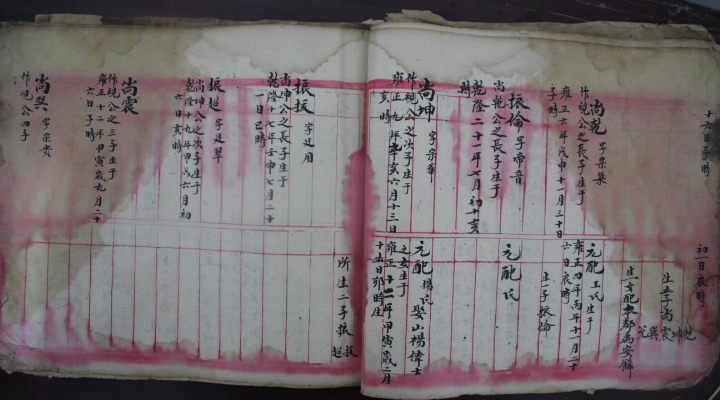 尚乾 字宗集
作視公之長子生于
雍正六年戊申十一月三十日
子時
振倫 字啼音
尚乾公之長子生于
乾隆二十一年七月初十亥
時
尚坤 字宗華
作視公之次子生于
雍正九年辛亥六月十三日
亥時
初一日辰時
生五子尚乾坤震巽兌
元配 王氏生于
雍正四年丙午十一月二十
六日辰時
生一子振倫
元配氏
元配 楊氏 娶山楊偉士
之女生于
雍正十二年甲寅歲二月
十五日卯時
振拔 字廷用
尚坤公之長子生于
乾隆十七年壬申七月二十
一日巳時
振超 字廷翠
尚坤公之次子生于
乾隆十九年甲戌六月初
六日亥時
尚震
作視公之三子生于
雍正十二年甲寅九月二十
六日子時
尚巽 字宗貴
作視公四子
所生二子振拔超